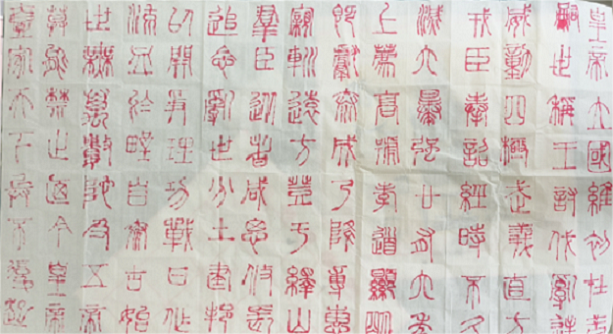 皇帝立國維初在昔
嗣世稱王討伐亂逆
威動四極武義直方
戎臣奉詔經時不久
滅六暴強廿有六年
上薦高號孝道顯明
既獻泰成乃降專惠
寴車巛遠方登于繹山
群臣從者咸思攸長
追念亂世分土建邦
以開爭理功戰日作
流血於野自泰古始
世無萬數陀及五帝
莫能禁止迺今皇帝
壹家天下兵不復起